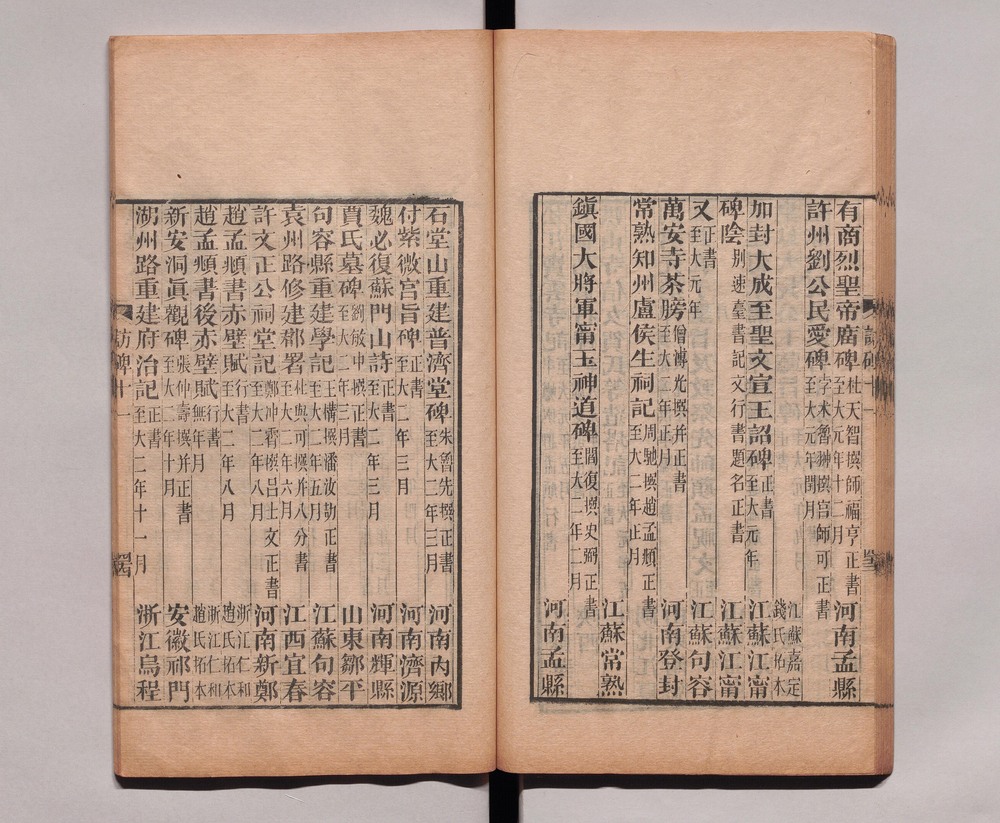 有商烈聖帝廟碑 杜天智撰師福亨正書 至大元年十二月 河南孟縣
許州劉公民愛碑 字术魯翀撰宫師可正書 至大元年閏月 江蘇嘉定錢氏拓本
加封大成至聖文宣王詔碑 正書 至大元年 江蘇江甯
碑陰 别速臺書記文行書題名正書 江蘇江甯
又 正書 至大元年 江蘇句容
萬安寺茶牓 僧溥光撰并正書 至大二年正月 河南登封
常熟知州盧侯生祠記 周馳撰趙孟頫正書 至大二年正月 江蘇常熟
鎭國大將軍甯玉神道碑 閻復撰史弼正書 至大二年二月 河南孟縣
石堂山重建普濟堂碑 朱魯先撰正書 至大二年三月 河南内鄉
付紫微宫旨碑 正書 至大二年三月 河南濟源
魏必復蘇門山詩 正書 至大二年三月 河南輝縣
賈氏墓碑 劉敏中撰正書 至大二年三月 山東鄒平
句容縣重建學記 王橫撰潘汝劼正書 至大二年五月 江蘇句容
袁州路修建郡署 杜與可撰并八分書 至大二年六月 江西宜春
許文正公祠堂記 鄭冲霄撰吕士文正書 至大二年八月 河南新鄭
趙孟頫書赤壁賦 行書 至大二年八月 浙江仁和趙氏拓本
趙孟頫書後赤壁賦 行書 無年月 浙江仁和趙氏拓本
新安洞眞觀碑 張仲壽撰并正書 至大二年十月 安徽祁門
湖州路重建府治記 正書 至大二年十一月 浙江烏程
訪碑十一